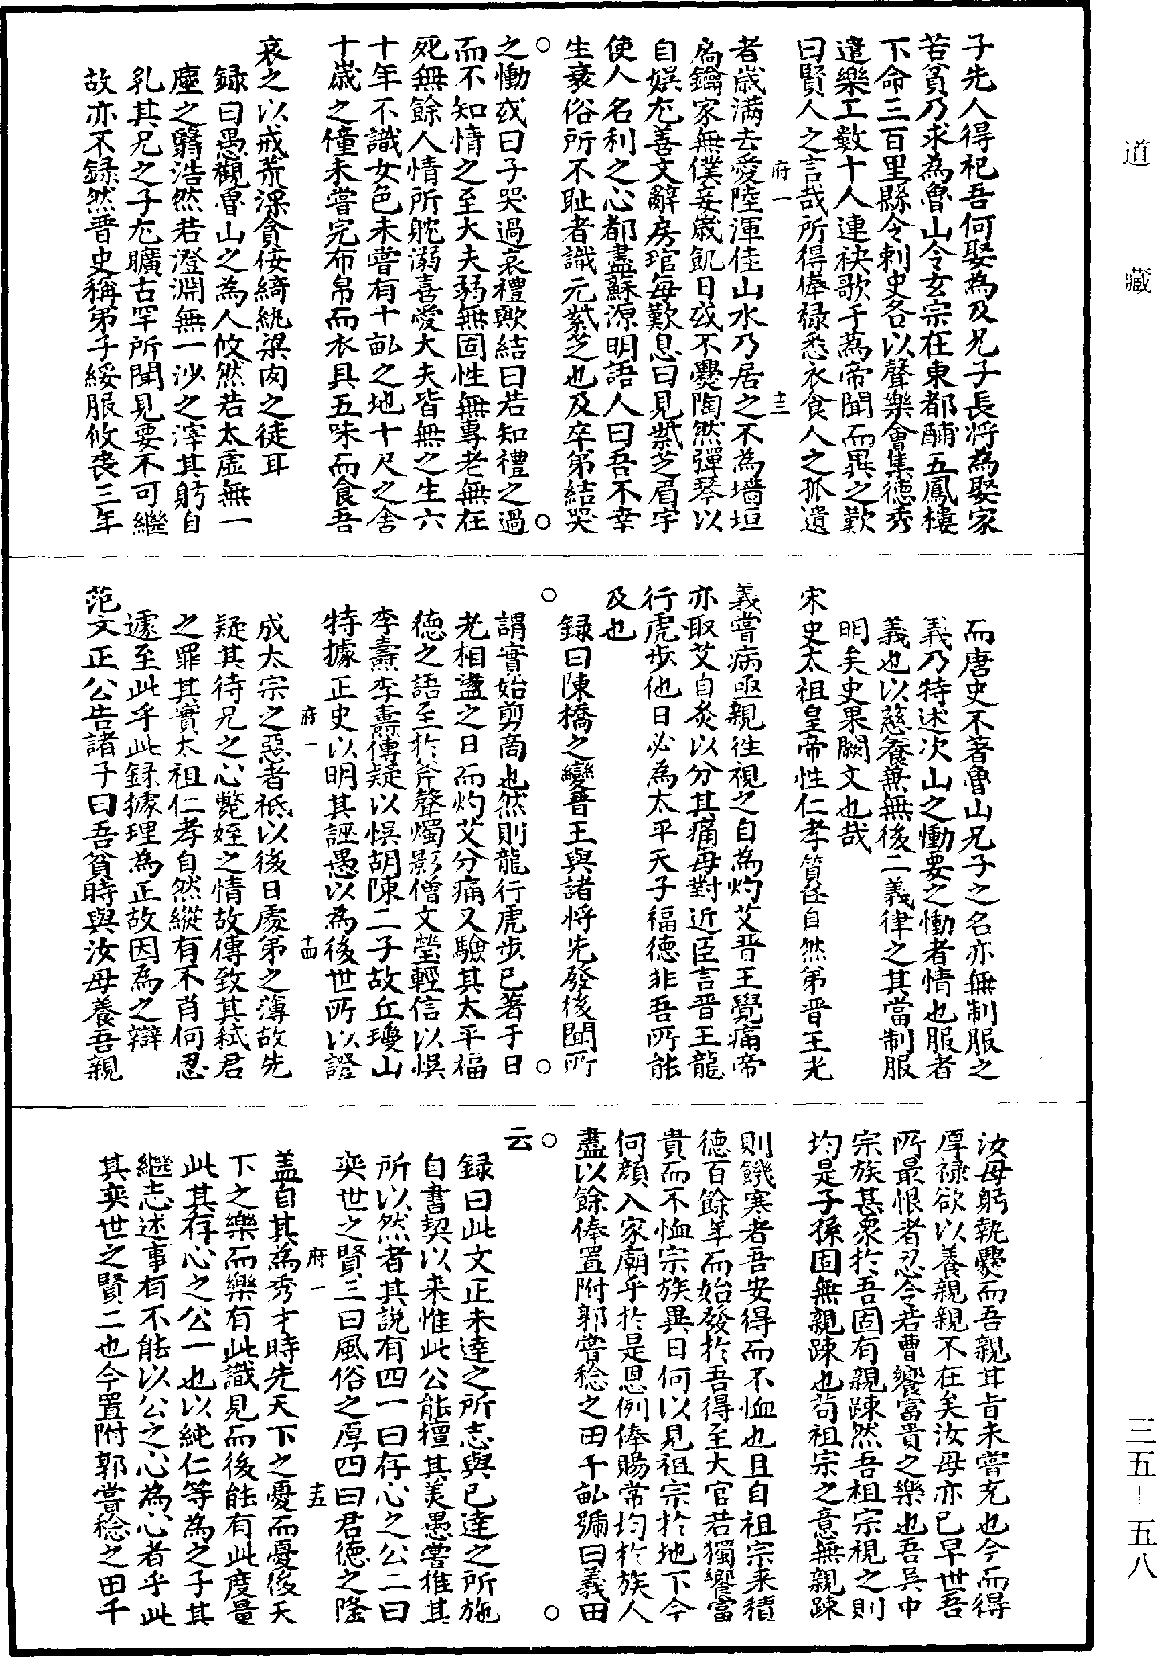 子先人得祀吾何娶為及兄子長將為娶家
苦貧乃求為魯山令玄宗在東都酺五鳳樓
下命三百里縣令刺史各以聲樂會集德秀
遣樂工數十人連袂歌于蔿帝聞而異之歎
曰賢人之言哉所得俸祿悉衣食人之孤遺
府一
十三
者歲滿去愛陸渾佳山水乃居之不為墻垣
扃鑰家無僕妾歲飢日或不爨陶然彈琴以
自娛尤善文辭房琯每歎息曰見紫芝眉宇
使人名利之心都盡蘇源明語人曰吾不幸
生衰俗所不耻者識元紫芝也及卒弟結哭
之慟或曰子哭過哀禮歟結曰若知禮之過
而不知情之至大夫弱無固性無專老無在
死無餘人情所躭溺喜愛大夫皆無之生六
十年不識女色未嘗有十畝之地十尺之舍
十歲之僮未嘗完布帛而衣具五味而食吾
哀之以戒荒淫貪佞綺紈梁肉之徒耳
録曰愚觀魯山之為人攸然若太虛無一
塵之翳浩然若澄淵無一沙之滓其躬自
乳其兄之子尤曠古罕所聞見要不可繼
故亦不録然晋史稱弟子綏服攸喪三年
而唐史不著魯山兄子之名亦無制服之
義乃特述次山之慟要之慟者情也服者
義也以慈養兼無後二義律之其當制服
明矣史果闕文也哉
宋史太祖皇帝性仁孝質任自然弟晋王光
義嘗病亟親往視之自為灼艾晋王覺痛帝
亦取艾自炙以分其痛每對近臣言晋王龍
行虎步他日必為太平天子福德非吾所能
及也
録曰陳橋之變晋王與諸將先發後聞所
謂實始剪商也然則龍行虎步已著于日
老相盪之日而灼艾分痛又驗其太平福
德之語至於斧聲燭影僧文瑩輕信以悮
李燾李燾傳疑以悮胡陳二子故丘瓊山
特據正史以明其誣愚以為後世所以證
府一
十四
成太宗之惡者祗以後日處弟之薄故先
疑其待兄之心斃姪之情故傳致其弒君
之罪其實太祖仁孝自然縱有不肖何忍
遽至此乎此録據理為正故因為之辯
范文正公告諸子曰吾貧時與汝母養吾親
汝母躬執爨而吾親甘旨未嘗充也今而得
厚祿欲以養親親不在矣汝母亦已早世吾
所最恨者忍令若曹饗富貴之樂也吾吴中
宗族甚衆於吾固有親踈然吾祖宗視之則
均是子孫固無親踈也苟祖宗之意無親踈
則饑寒者吾安得而不恤也且自祖宗来積
德百餘年而始發於吾得至大官若獨饗富
貴而不恤宗族異日何以見祖宗於地下今
何顏入家廟乎於是恩例俸賜常均於族人
盡以餘俸置附郭嘗稔之田千畝號曰義田
云
録曰此文正未達之所志與已達之所施
自書契以来惟此公能擅其美愚嘗推其
所以然者其說有四一曰存心之公二曰
奕世之賢三曰風俗之厚四曰君德之隆
府一
十五
盖自其為秀才時先天下之憂而憂後天
下之樂而樂有此識見而後能有此度量
此其存心之公一也以純仁等為之子其
繼志述事有不能以公之心為心者乎此
其奕世之賢二也今置附郭嘗稔之田千
道藏
三五—五八